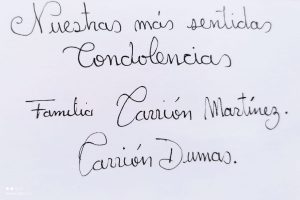 Nuestras más sentidas
Condolencias
Familia Carrión Martínez.
Carrión Dumas.